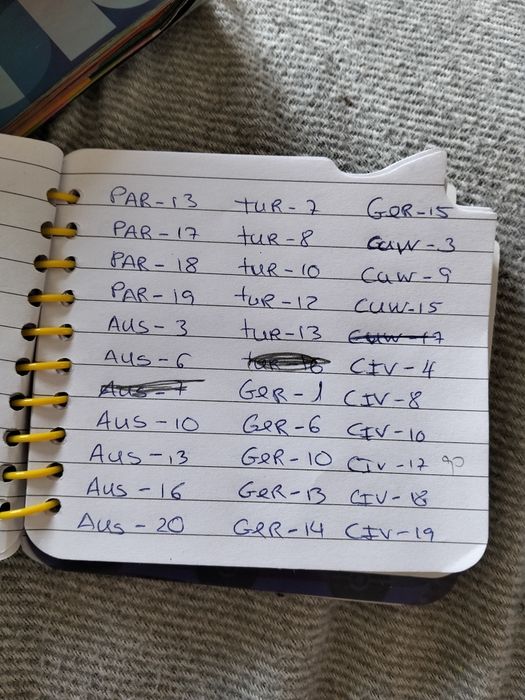 PAR-13 tUR-7 GER-15
PAR-17 tUR-8 CUW-3
PAR-18 tUR-10 CUW-9
PAR-19 tUR-12 CUW-15
AUS-3 tUR-13 CUW-17
AUS-6 tUR-16 CIV-4
AUS-7 GER-1 CIV-8
AUS-10 GER-6 CIV-10
AUS-13 GER-10 CIV-17 90
AUS-16 GER-13 CIV-18
AUS-20 GER-14 CIV-19